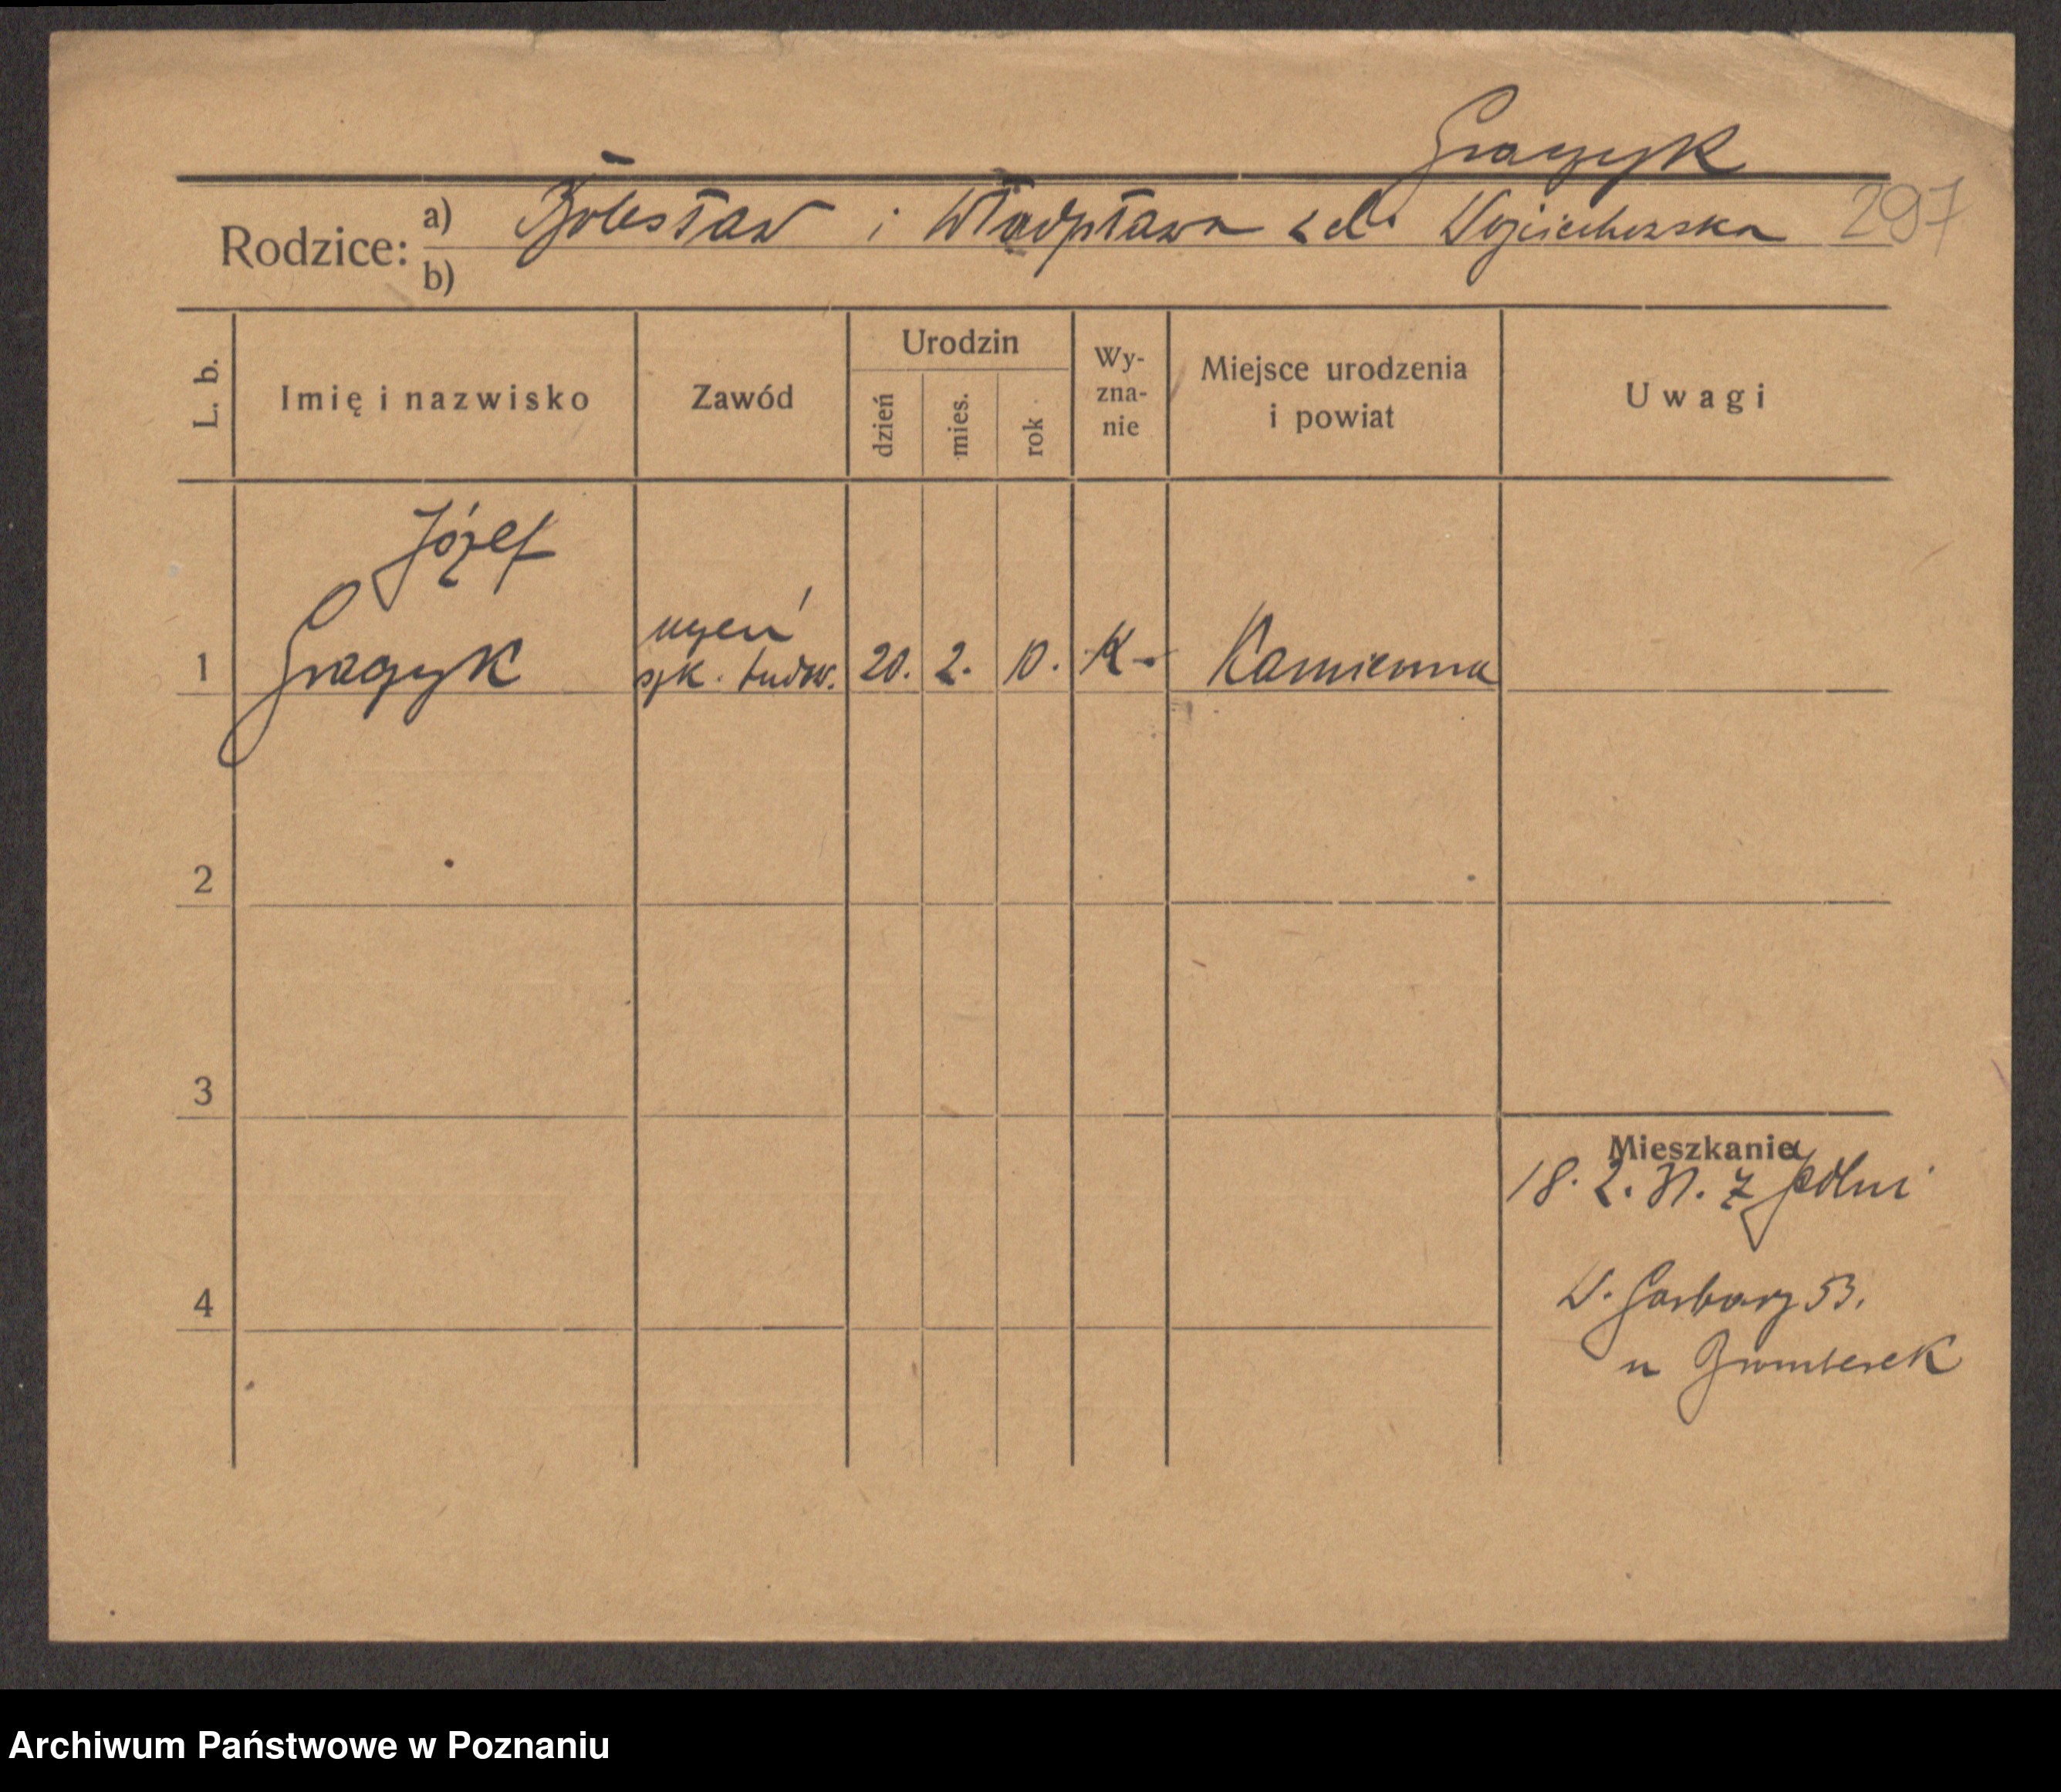 Graczyk
Rodzice: a) Bolesław i Władysława z d. Wojciechowska 297
b)
L. b.
Imię i nazwisko
Zawód
Urodzin
dzień
mies.
rok
Wy-
zna-
nie
Miejsce urodzenia
i powiat
Uwagi
Józef
uczeń
1 Graczyk szk. budow. 20. 2. 10. K- Kamienna
2
3
Mieszkanie
18. 2. 31. z
4
W. Garbary 53.
u
Archiwum Państwowe w Poznaniu